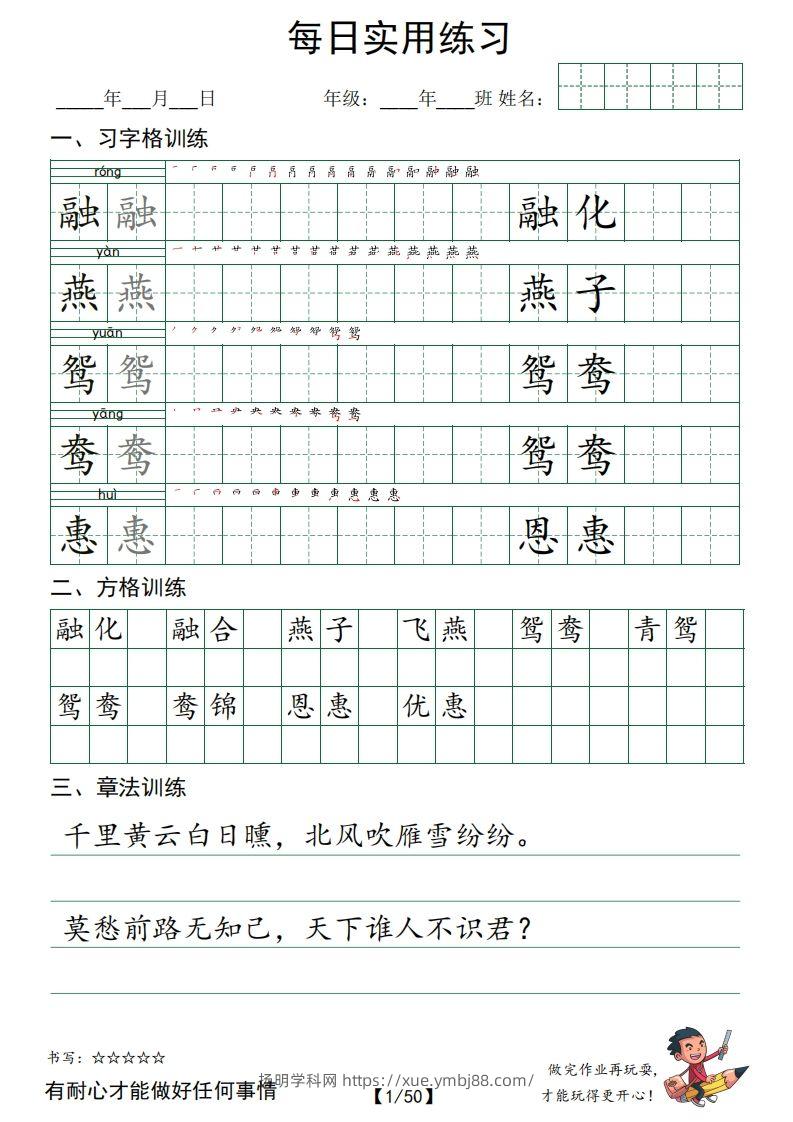 每日实用练习
_____年___月___日 年级：____年____班 姓名：
一、习字格训练
róng
融 融 融 化
yàn
燕 燕 燕 子
yuān
鸳 鸳 鸳 鸯
yāng
鸯 鸯 鸳 鸯
huì
惠 惠 恩 惠
二、方格训练
融 化 融 合 燕 子 飞 燕 鸳 鸯 青 鸳
鸳 鸯 鸯 锦 恩 惠 优 惠
三、章法训练
千里黄云白日曛，北风吹雁雪纷纷。
莫愁前路无知己，天下谁人不识君？
书写：☆☆☆☆☆
有耐心才能做好任何事情
扬明学科网 https://xue.ymbj88.com/
【1/50】
做完作业再玩耍，
才能玩得更开心！